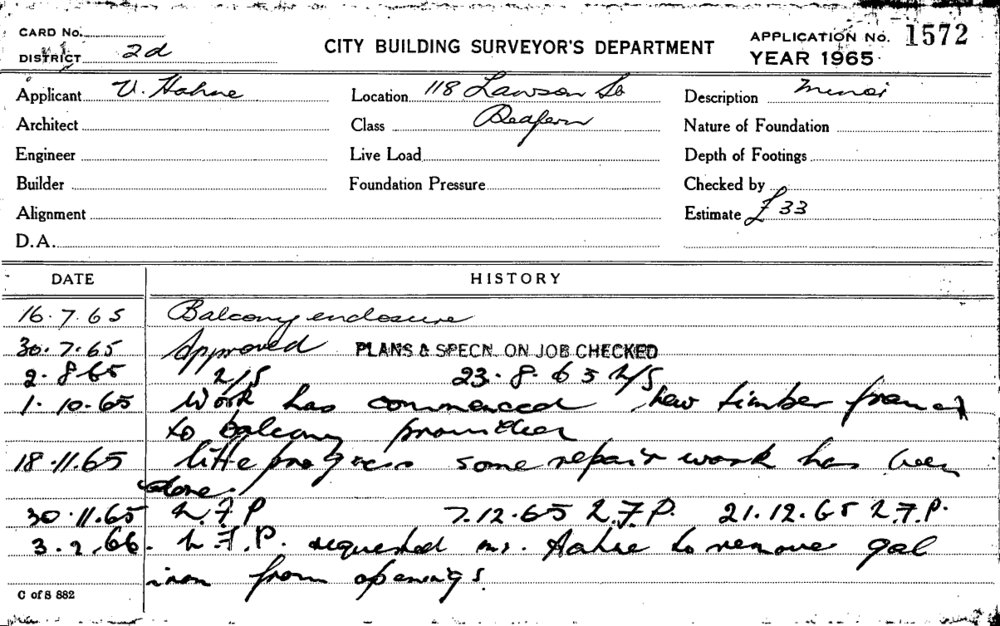 CARD No.
DISTRICT 2d
CITY BUILDING SURVEYOR'S DEPARTMENT
APPLICATION No. 1572
YEAR 1965
Applicant V. Hahne
Location 118 Lawson St
Description Minor
Architect
Class Redfern
Nature of Foundation
Engineer
Live Load
Depth of Footings
Builder
Foundation Pressure
Checked by
Alignment
Estimate £33
D.A.
DATE
HISTORY
16.7.65 Balcony enclosure
30.7.65 Approved PLANS & SPECN. ON JOB CHECKED
2.8.65 N/S 23.8.65 N/S
1.10.65 Work has commenced new timber
to balcony
18.11.65 little progress some repair work has been
done.
30.11.65 N.F.P 7.12.65 N.F.P. 21.12.65 N.F.P.
3.2.66. N.F.P. requested mr. Hahne to remove gal
iron from openings.
C of S 882